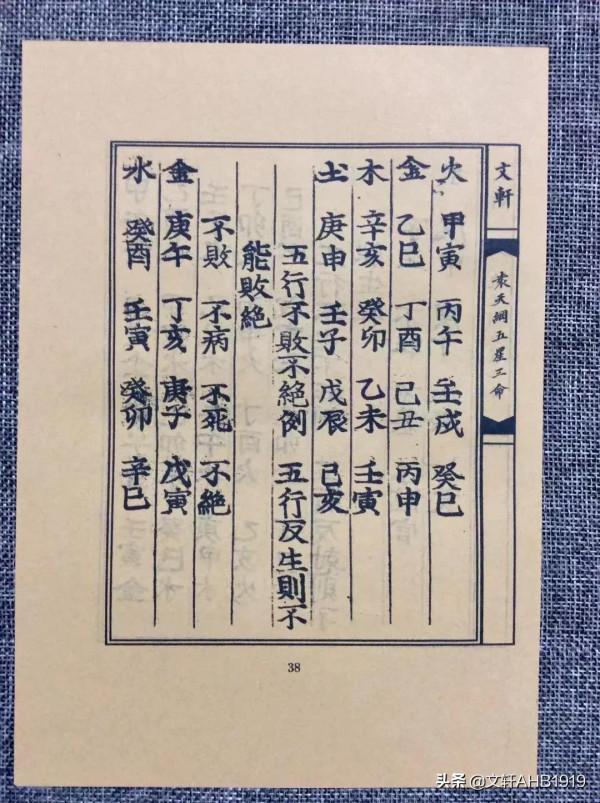 文軒
袁天綱五星三命
火 甲寅 丙午 壬戌 癸巳
金 乙巳 丁酉 己丑 丙申
木 辛亥 癸卯 乙未 壬寅
土 庚申 壬子 戊辰 己亥
五行不敗不絕例 五行反生則不
能敗絕
不敗 不病 不死 不絕
金 庚午 丁亥 庚子 戊寅
水 癸酉 壬寅 癸卯 辛巳
38
头条 @文轩AHB1919